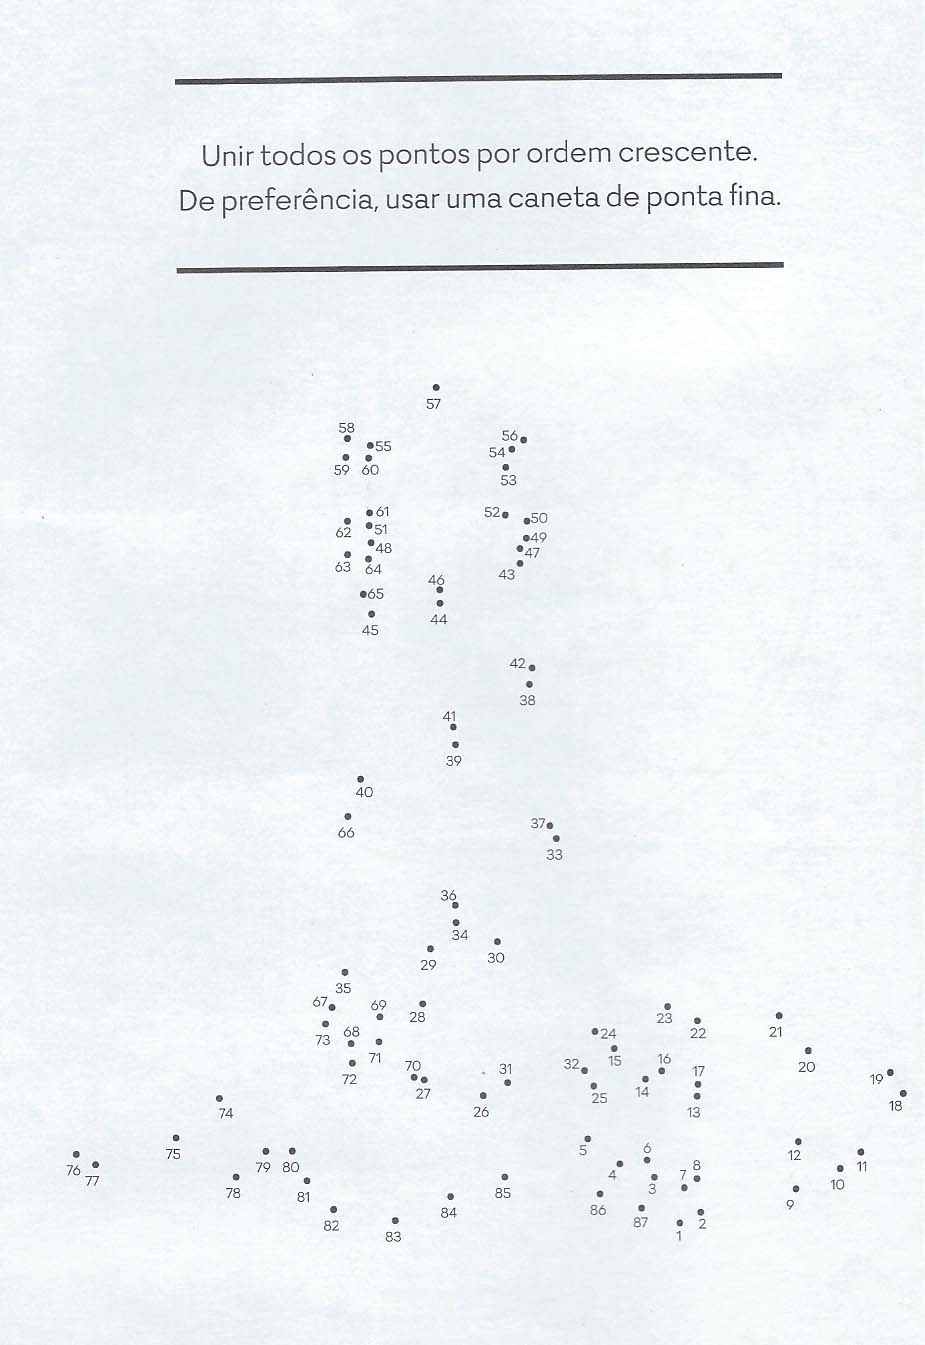 Unir todos os pontos por ordem crescente.
De preferência, usar uma caneta de ponta fina.
57
58
55
56
54
59 60
53
61
52 50
62 51
48
49
47
63 64
43
46
65
44
45
42
38
41
39
40
37
66
33
36
34
29 30
35
67 69
28
23
22
21
73 68
24
71
15 16
32
20
72 70
31
17
19
27
14
25
26
13
18
74
75
5
6
12
76
77
79 80
8
11
4
7
3
78
81
85
10
9
86
84
87
2
82
83
1